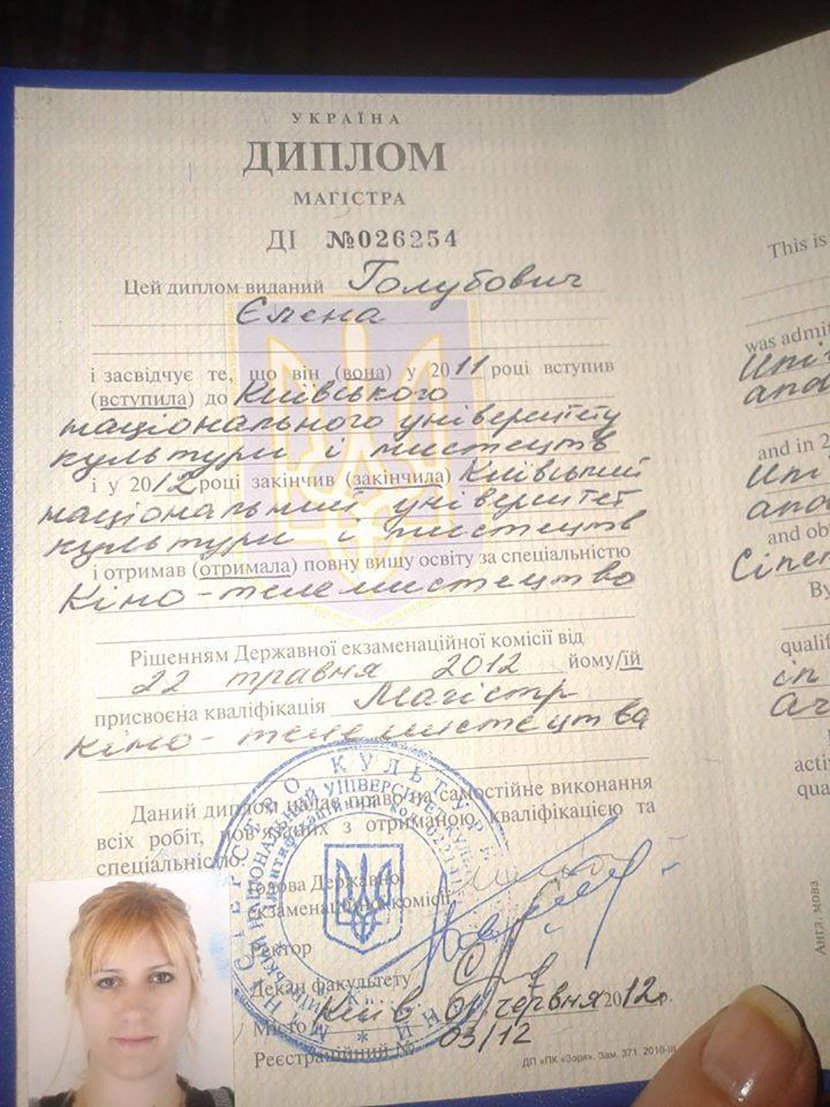 УКРАЇНА
ДИПЛОМ
МАГІСТРА
ДІ №026254
Цей диплом виданий Голубович
Єлена
і засвідчує те, що він (вона) у 2011 році вступив
(вступила) до Київського
національного університету
культури і мистецтв
і у 2012 році закінчив (закінчила) Київський
національний університет
культури і мистецтв
і отримав (отримала) повну вищу освіту за спеціальністю
Кіно-телемистецтво
Рішенням Державної екзаменаційної комісії від
22 травня 2012 йому/їй
присвоєна кваліфікація Магістр
кіно-телемистецтва
Даний диплом надає право на самостійне виконання
всіх робіт, пов'язаних з отриманою кваліфікацією та
спеціальністю.
Голова Державної
екзаменаційної комісії
Ректор
Декан факультету
Місто Київ 01 червня 2012р.
Реєстраційний № 03/12
ДП «ПК «Зоря». Зам. 371. 2010-ІІІ
МІНІСТЕРСТВО КУЛЬТУРИ
This is
was admi
Uni
and
and in 2
Uni
and
and ob
Cinem
By
qualif
in
Ar
activ
qua
Англ. мова